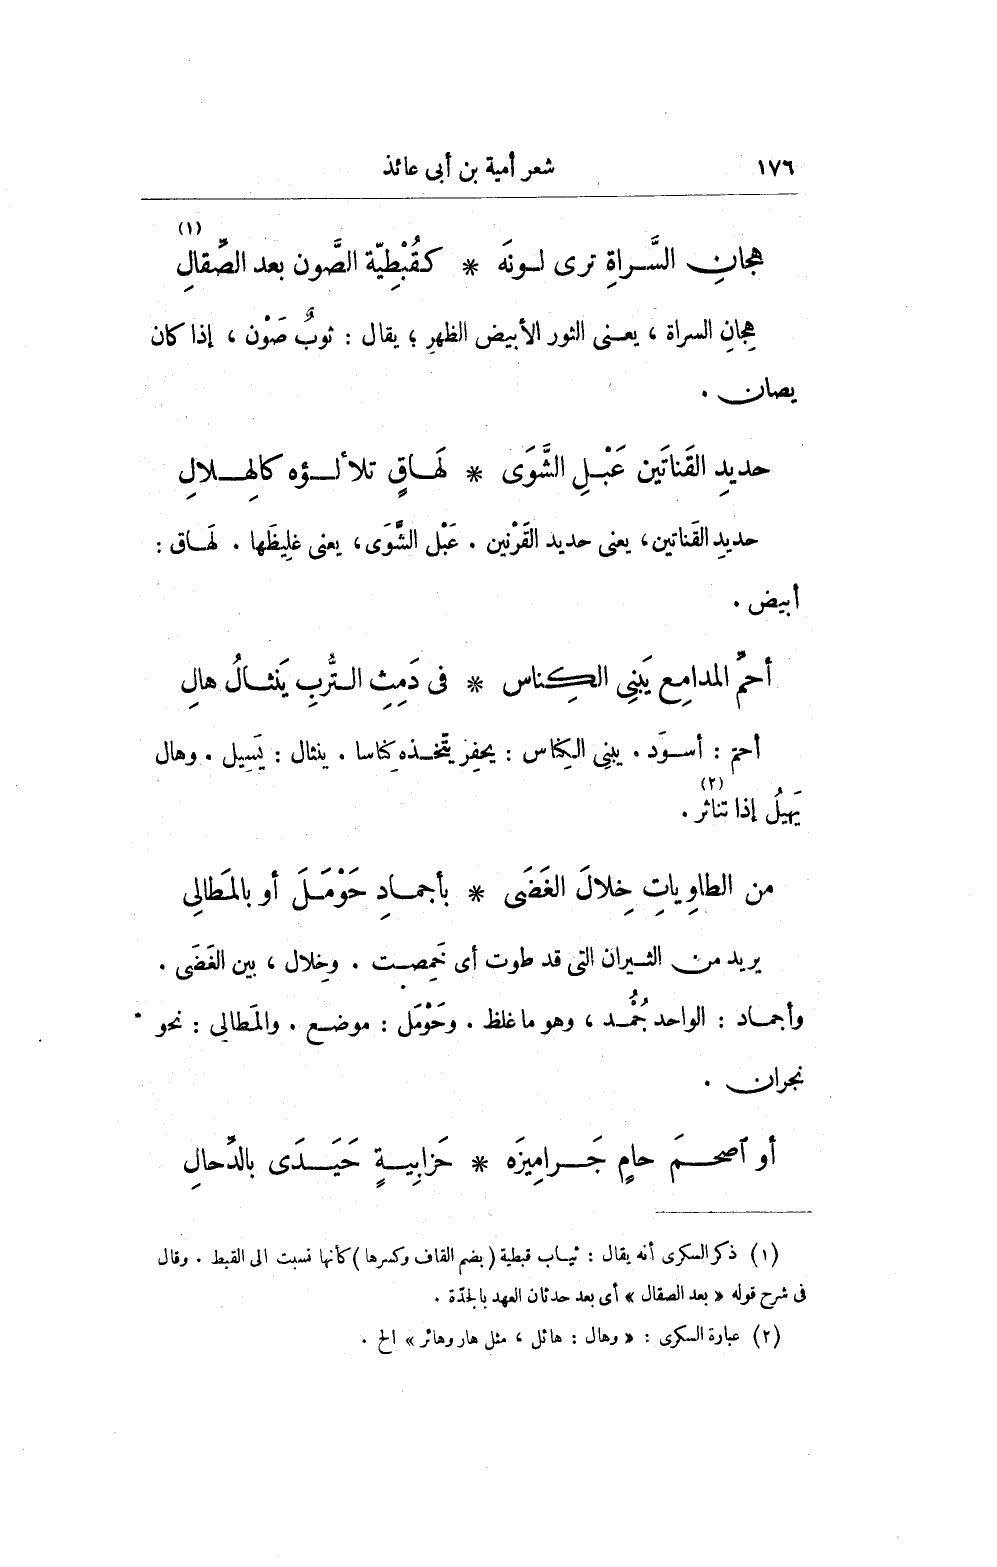 ١٧٦ شعر أمية بن أبى عائذ
هِجانِ السَّراةِ ترى لونَه * كقُبْطِيّة الصَّون بعد الصِّقالِ (١)
هِجانِ السراة ، يعنى الثور الأبيض الظهرِ ؛ يقال : ثوبُ صَوْن ، إذا كان
يصان .
حديدِ القَناتَين عَبْلِ الشَّوَى * لَهاقٍ تلألؤه كالهِلالِ
حديدِ القناتين، يعنى حديد القَرْنين . عَبْل الشَّوَى، يعنى غليظَها . لَهاق :
أبيض .
أحمِّ المدامِع يَبنِى الكِناس * فى دَمِثِ التُّربِ يَنثالُ هالِ
أحمّ : أسوَد . يبنِى الكِناس : يحفِر يتّخذه كِناسا . ينثال : يَسِيل . وهال
يَهيلُ إذا تناثر (٢) .
من الطاوِياتِ خِلالَ الغَضَى * بأجمادِ حَوْمَلَ أو بالمَطالِى
يريد من الثيران التى قد طوت أى خَمِصت . وخِلال ، بين الغَضَى .
وأجماد : الواحد جُمُد ، وهو ما غلظ . وحَوْمَل : موضع . والمَطالِى : نحو
نجران .
أو ٱصحمَ حامٍ جَرامِيزَه * حَزابِيةٍ حَيَدَى بالدِّحالِ
(١) ذكر السكرى أنه يقال : ثياب قبطية (بضم القاف وكسرها) كأنها نسبت الى القبط . وقال
فى شرح قوله « بعد الصقال » أى بعد حدثان العهد بالجدّة .
(٢) عبارة السكرى : « وهال : هائل ، مثل هار وهائر » الخ .